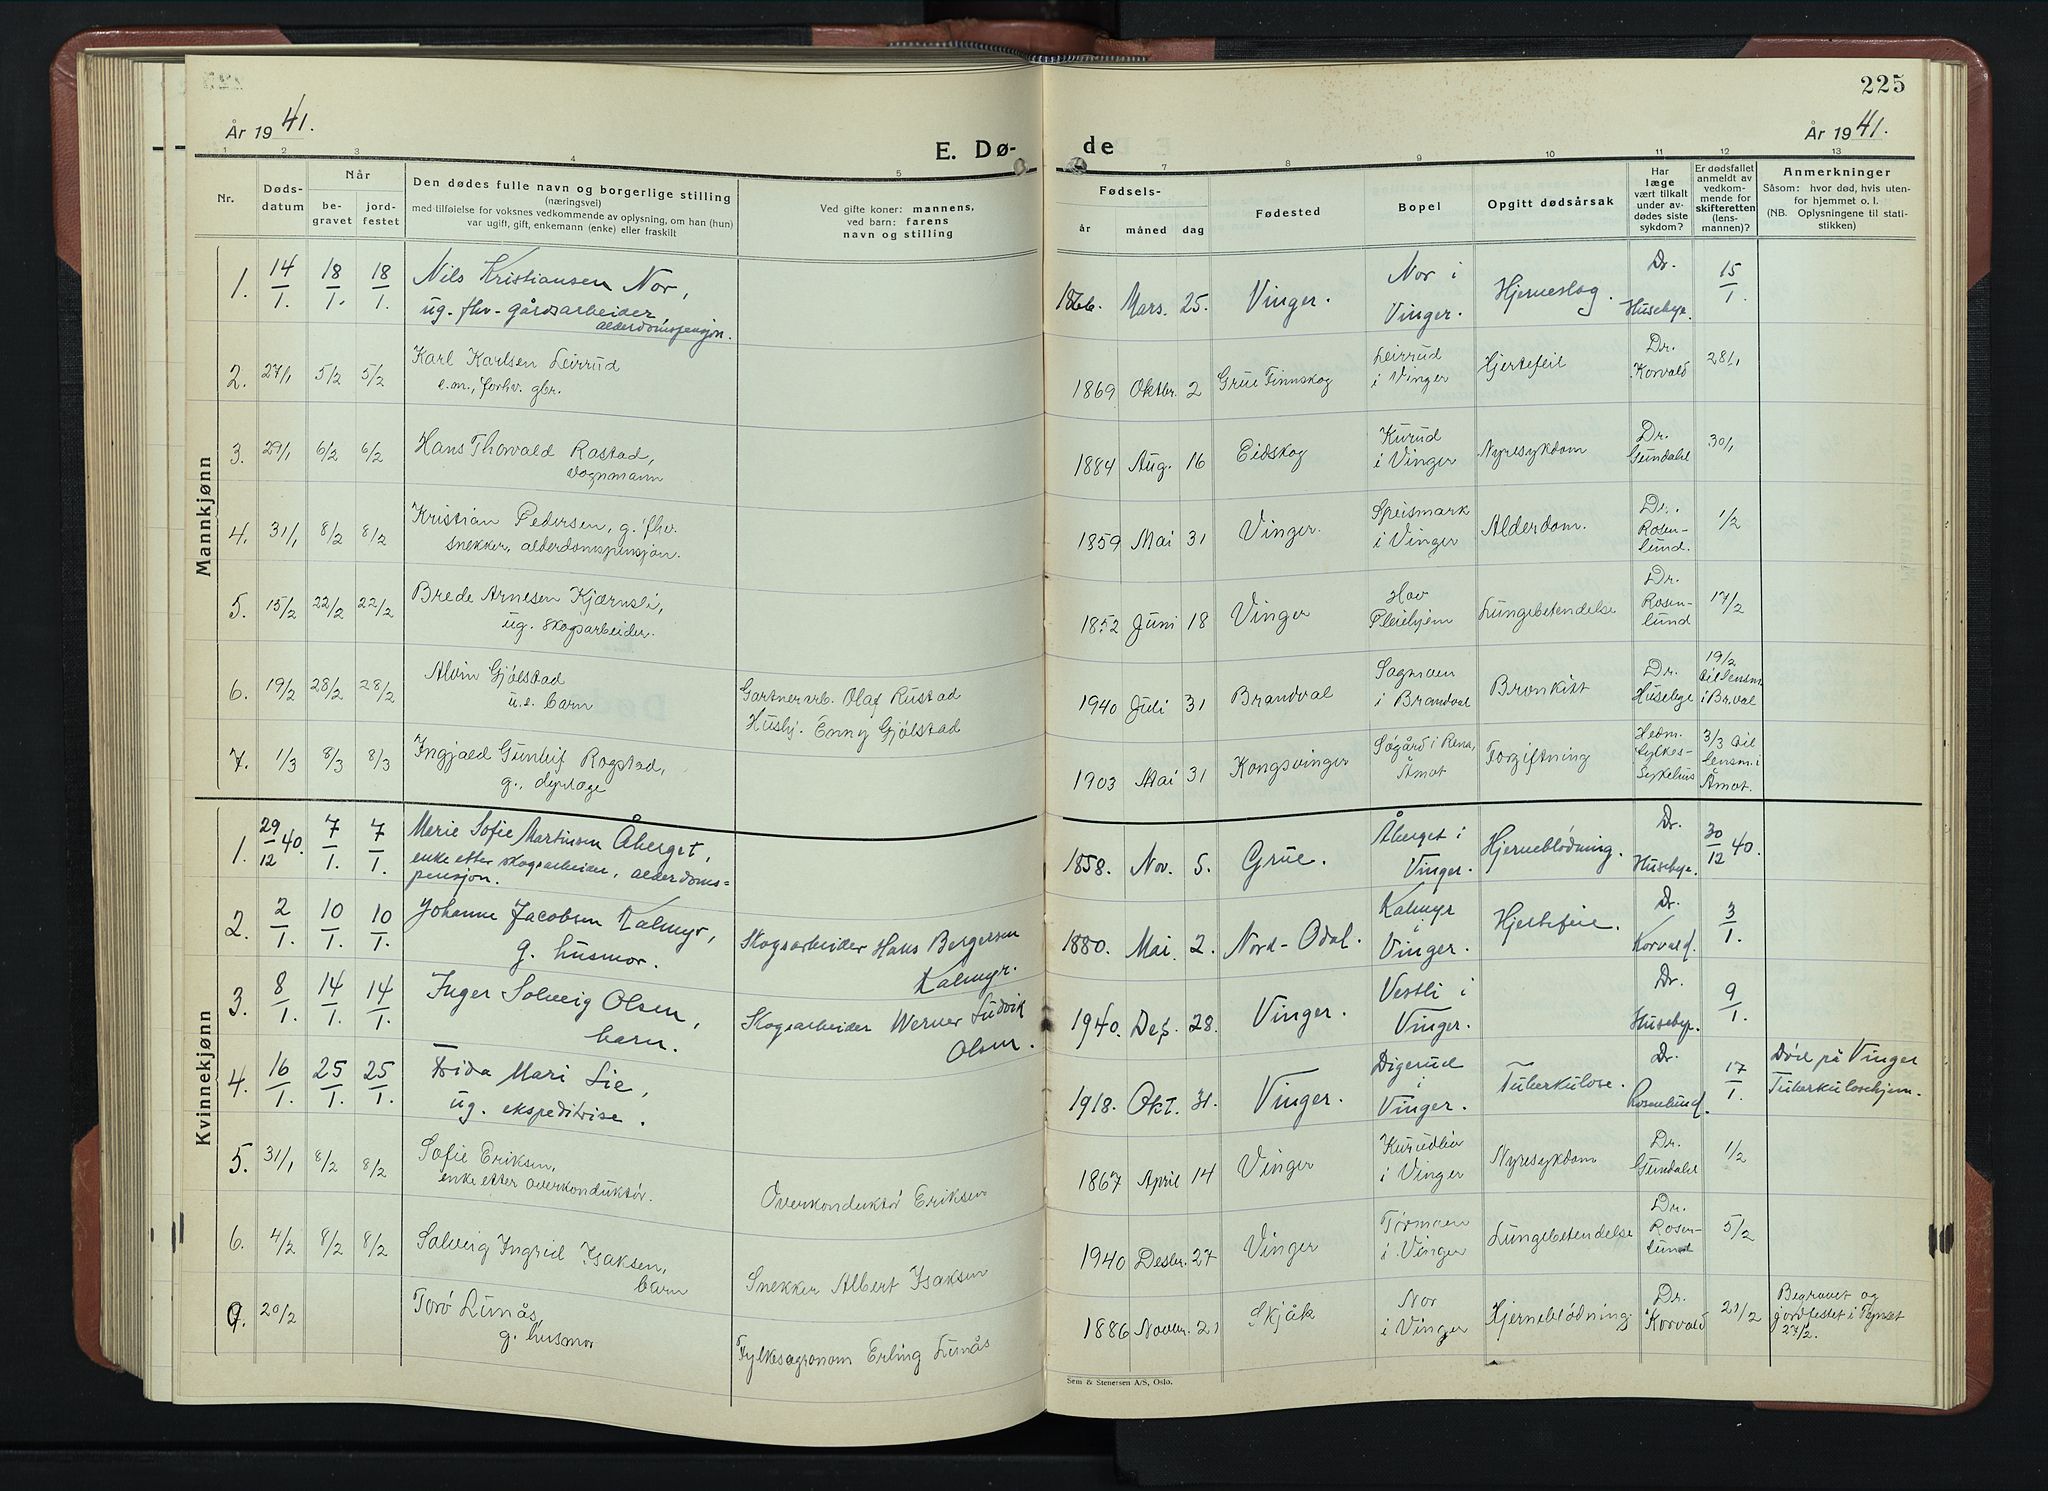 225
År 1941.
E. Dø-
de
År 1941.
1 2 3 4 5 7 8 9 10 11 12 13
Nr.
Døds-
datum
Når
be-
gravet
jord-
festet
Den dødes fulle navn og borgerlige stilling
(næringsvei)
med tilføielse for voksnes vedkommende av oplysning, om han (hun)
var ugift, gift, enkemann (enke) eller fraskilt
Ved gifte koner: mannens,
ved barn: farens
navn og stilling
Fødsels-
år måned dag
Fødested
Bopel
Opgitt dødsårsak
Har
læge
vært tilkalt
under av-
dødes siste
sykdom?
Er dødsfallet
anmeldt av
vedkom-
mende for
skifteretten
(lens-
mannen)?
Anmerkninger
Såsom: hvor død, hvis uten-
for hjemmet o. l.
(NB. Oplysningene til stati-
stikken)
Mannkjønn
1. 14/1. 18/1. 18/1. Nils Kristiansen Nor,
ug. fhv. gårdsarbeider
alderdomspensjon.
1866. Mars. 25. Vinger. Nor i
Vinger. Hjerneslag. Dr.
Husebye. 15/1.
2. 27/1 5/2 5/2 Karl Karlsen Leirrud
e.m., forhv. gbr.
1869 Oktbr. 2 Grue Finnskog Leirrud
i Vinger Hjertefeil Dr.
Korvald 28/1
3. 29/1 6/2 6/2 Hans Thorvald Rastad,
vognmann
1884 Aug. 16 Eidskog Kurud
i Vinger Nyresykdom Dr.
Gundahl 30/1
4. 31/1 8/2 8/2 Kristian Pedersen, g. fhv.
snekker, alderdomspensjon.
1859 Mai 31 Vinger. Speismark
i Vinger Alderdom. Dr.
Rosen-
lund. 1/2
5. 15/2 22/2 22/2 Brede Arnesen Kjærnsli,
ug. skogsarbeider.
1852 Juni 18 Vinger Hov
Pleiehjem Lungebetendelse Dr.
Rosen-
lund 17/2
6. 19/2 28/2 28/2 Alvin Gjølstad
u.e. barn
Gartnerarb. Olaf Rustad
Hushj. Enny Gjølstad
1940 Juli 31 Brandval Sagmoen
i Brandval Bronkitt Dr.
Husebye 19/2
til lensm
i Br.val
7. 1/3 8/3 8/3 Ingjald Gunleif Rogstad,
g., dyrlæge
1903 Mai 31 Kongsvinger Søgård i Rena,
Åmot Forgiftning Hedm.
fylkes-
sykehus 3/3 til
lensm. i
Åmot.
Kvinnekjønn
1. 29/12 40. 7/1. 7/1. Marie Sofie Martinsen Åberget,
enke etter skogsarbeider, alderdoms=
pensjon.
1858. Nov. 5. Grue. Åberget i
Vinger. Hjerneblødning. Dr.
Husebye. 30/12 40.
2. 2/1. 10/1. 10/1. Johanne Jacobsen Kalmyr,
g. husmor.
Skogsarbeider Hans Bergersen
Kalmyr.
1880. Mai. 2. Nord-Odal. Kalmyr
i
Vinger. Hjertefeil. Dr.
Korvald. 3/1.
3. 8/1. 14/1. 14/1. Inger Solveig Olsen,
barn.
Skogsarbeider Werner Ludvik
Olsen.
1940. Des. 28. Vinger. Vestli i
Vinger. Dr.
Husebye. 9/1.
4. 16/1. 25/1. 25/1. Frida Mari Lie,
ug. ekspeditrise.
1918. Okt. 31. Vinger. Digerud
i
Vinger. Tuberkulose. Dr.
Rosenlund. 17/1. Død på Vinger
Tuberkulosehjem.
5. 31/1 8/2 8/2 Sofie Eriksen,
enke etter overkonduktør.
Overkonduktør Eriksen
1867 April 14 Vinger Kurudlia
i Vinger Nyresykdom Dr.
Gundahl 1/2
6. 4/2 8/2 8/2 Solveig Ingrid Isaksen,
barn
Snekker Albert Isaksen
1940 Desbr. 27 Vinger Tørmoen
i Vinger Lungebetendelse Dr.
Rosen-
lund 5/2
20/2 Torø Lunås,
g. husmor
Fylkesagronom Erling Lunås
1886 Novbr. 21 Skjåk Nor
i Vinger Hjerneblødning Dr.
Korvald 21/2 Begravet og
jordfestet i Tynset
27/2.
Sem & Stenersen A/S, Oslo.